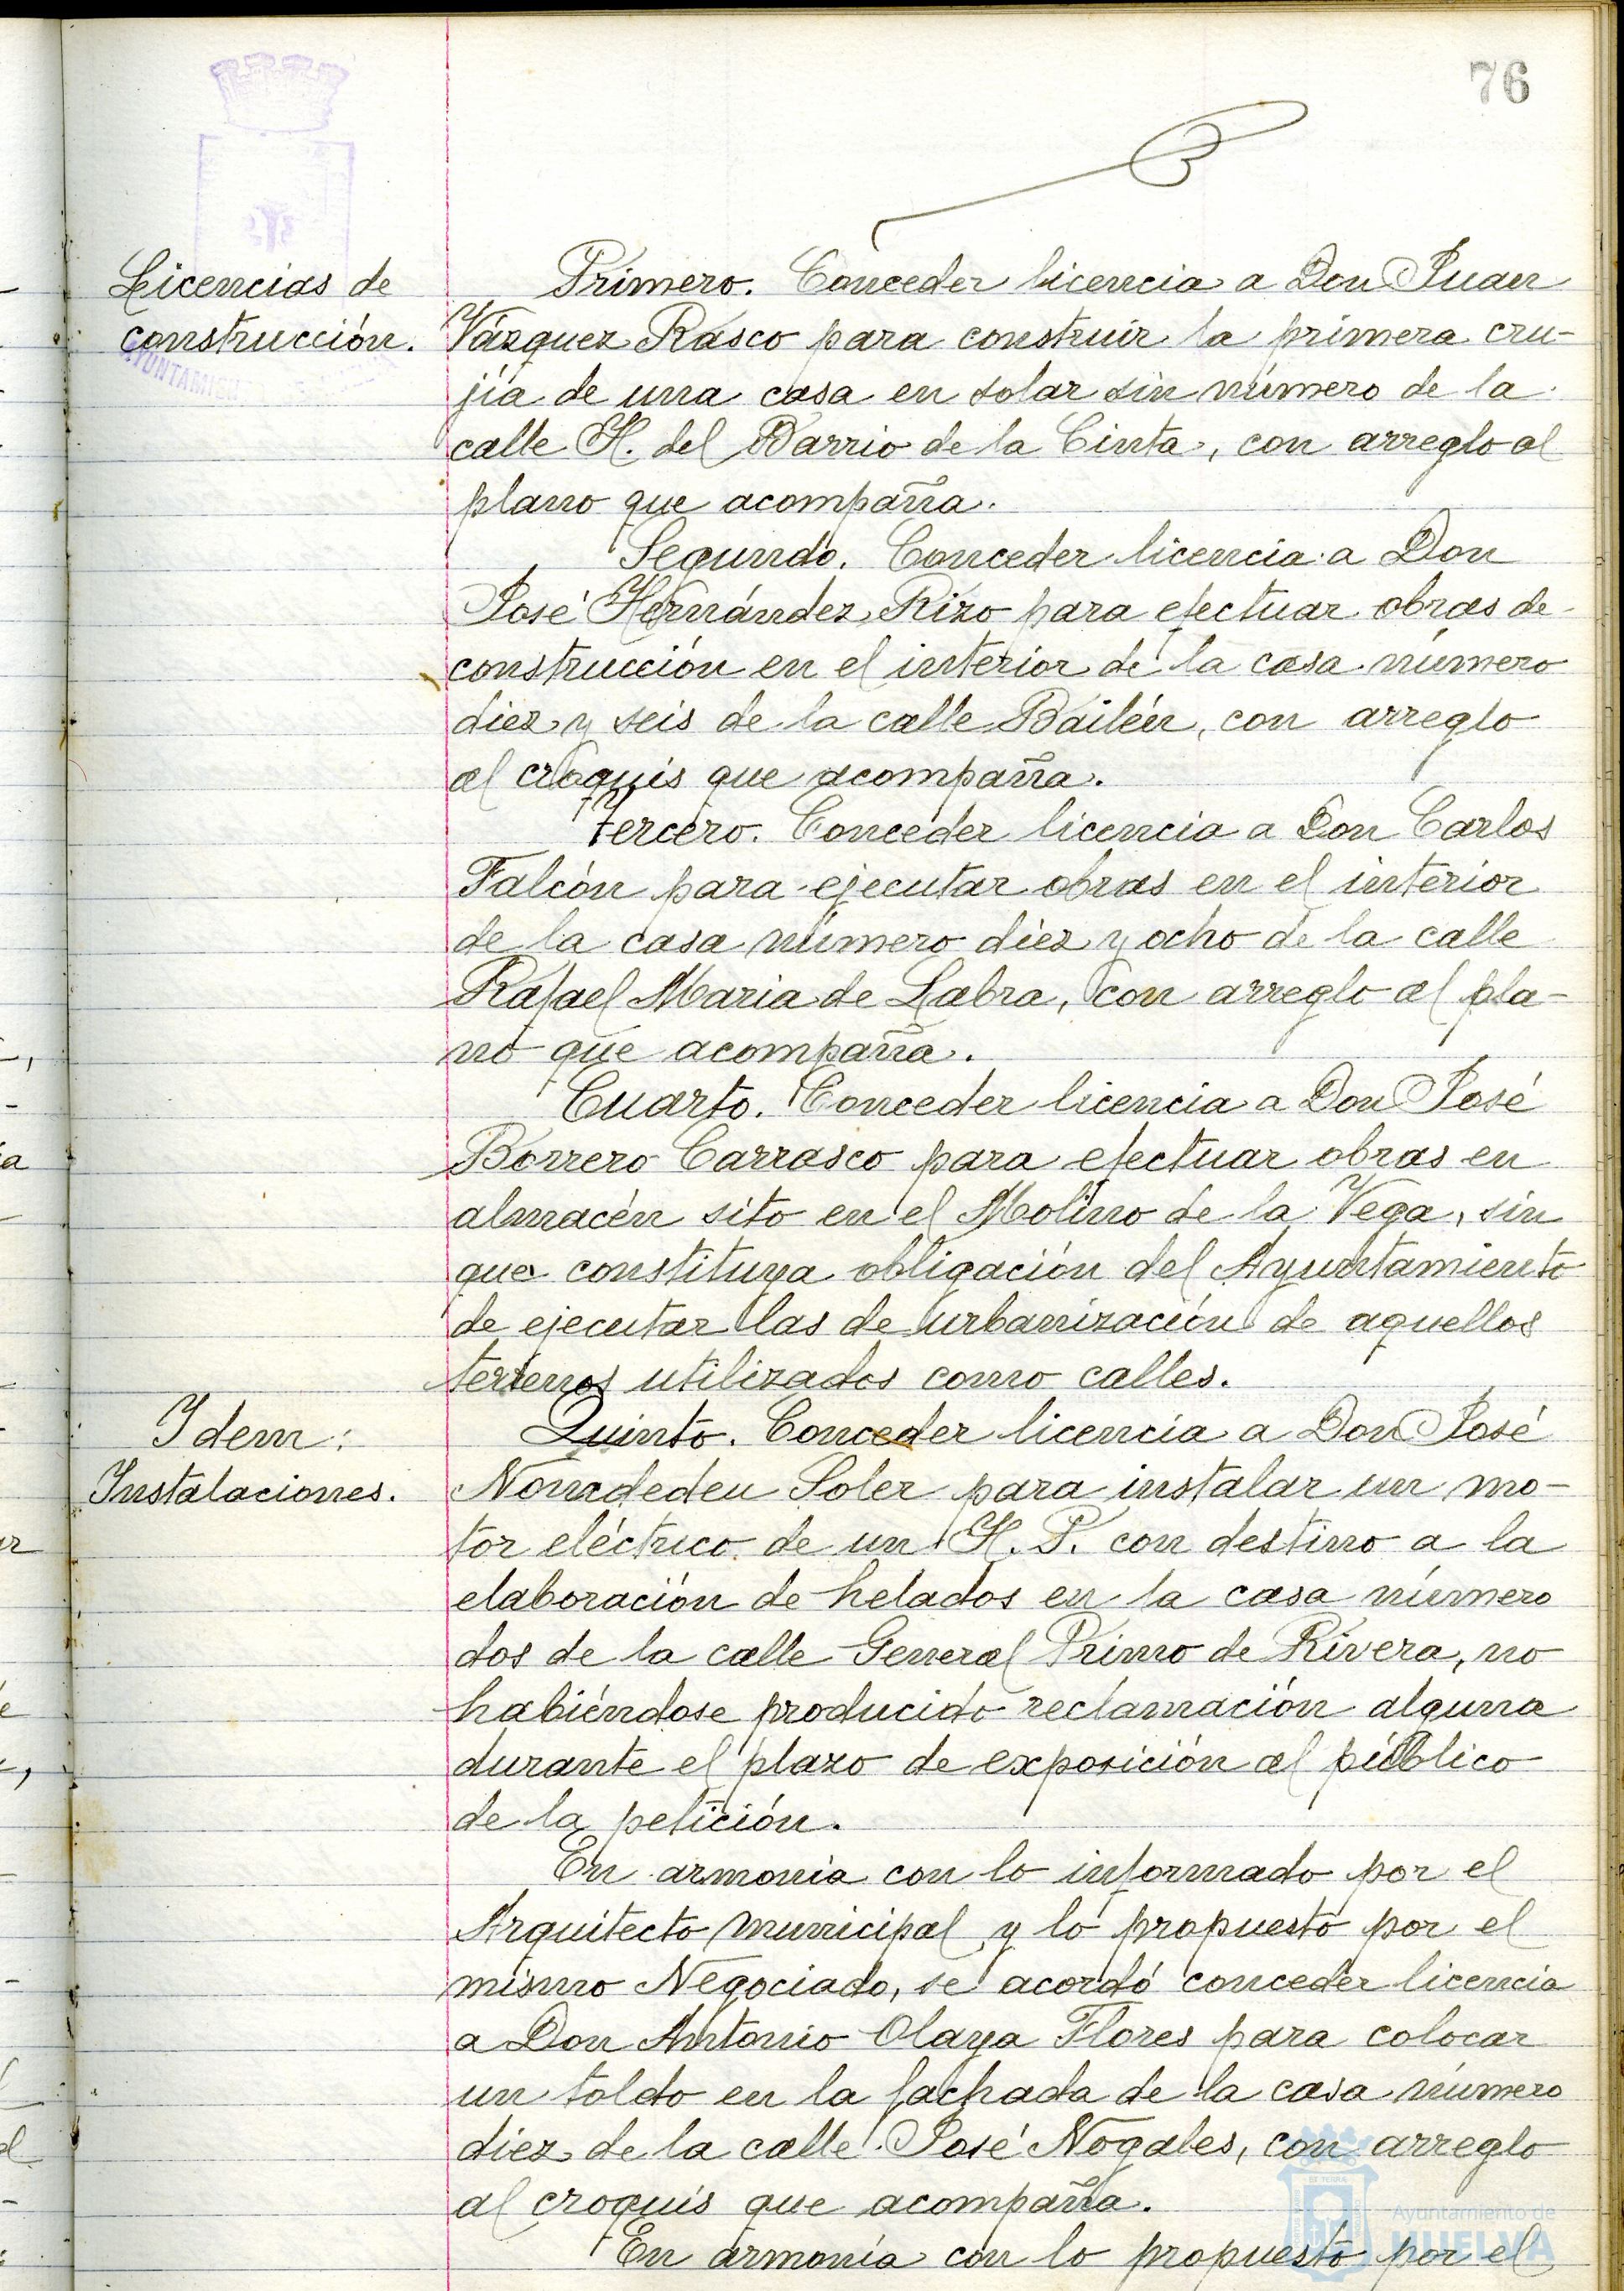 76
Licencias de
construcción.
Primero. Conceder licencia a Don Juan
Vázquez Rasco para construir la primera cru-
jía de una casa en solar sin número de la
calle H. del Barrio de la Cinta, con arreglo al
plano que acompaña.
Segundo. Conceder licencia a Don
José Hernández Rizo para efectuar obras de
construcción en el interior de la casa número
diez y seis de la calle Bailén, con arreglo
al croquis que acompaña.
Tercero. Conceder licencia a Don Carlos
Falcón para ejecutar obras en el interior
de la casa número diez y ocho de la calle
Rafael Maria de Labra, con arreglo al pla-
no que acompaña.
Cuarto. Conceder licencia a Don José
Borrero Carrasco para efectuar obras en
almacén sito en el Molino de la Vega, sin
que constituya obligación del Ayuntamiento
de ejecutar las de urbanización de aquellos
terrenos utilizados como calles.
Idem:
Instalaciones.
Quinto. Conceder licencia a Don José
Nomdedeu Soler para instalar un mo-
tor eléctrico de un H. P. con destino a la
elaboración de helados en la casa número
dos de la calle General Primo de Rivera, no
habiéndose producido reclamación alguna
durante el plazo de exposición al público
de la petición.
En armonia con lo informado por el
Arquitecto municipal y lo propuesto por el
mismo Negociado, se acordó conceder licencia
a Don Antonio Olaya Flores para colocar
un toldo en la fachada de la casa número
diez de la calle José Nogales, con arreglo
al croquis que acompaña.
En armonía con lo propuesto por el
Ayuntamiento de
HUELVA